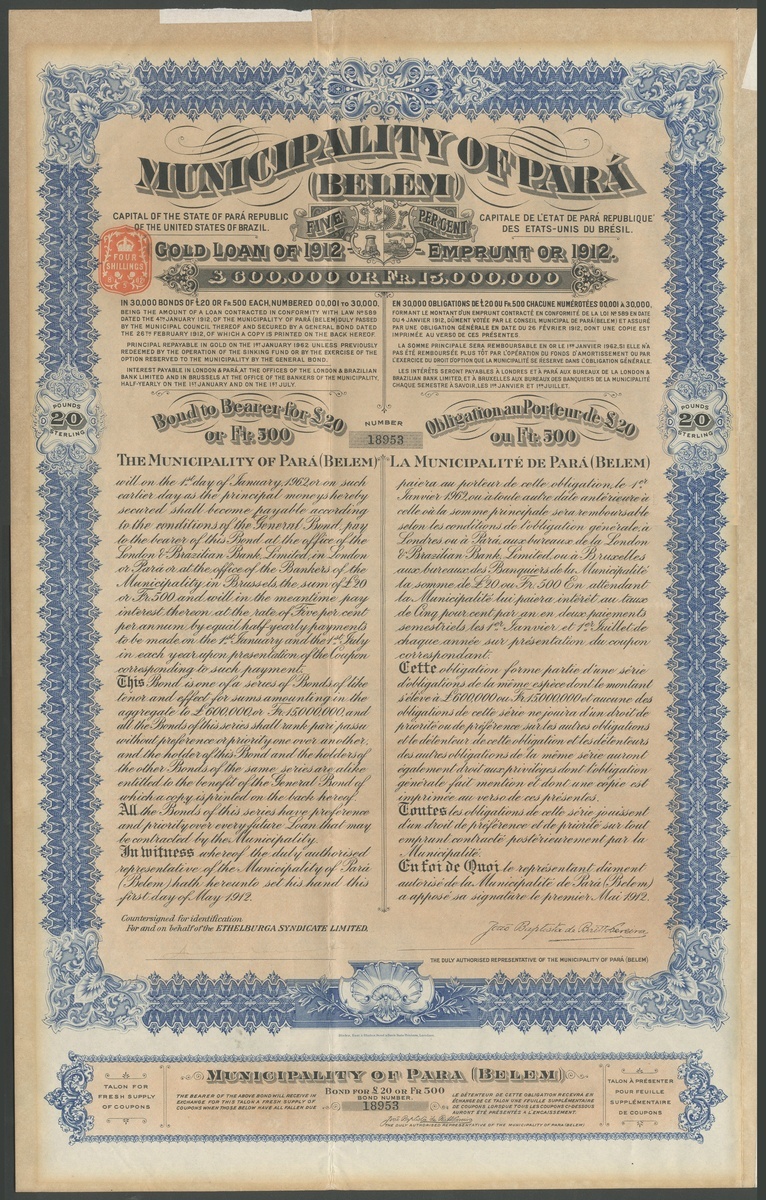 MUNICIPALITY OF PARÁ
(BELEM)
CAPITAL OF THE STATE OF PARÁ REPUBLIC
OF THE UNITED STATES OF BRAZIL.
FIVE PER CENT
CAPITALE DE L'ETAT DE PARÁ REPUBLIQUE
DES ETATS-UNIS DU BRÉSIL.
FOUR
SHILLINGS
GOLD LOAN OF 1912 - EMPRUNT OR 1912.
£600,000 OR FR. 15,000,000
IN 30,000 BONDS OF £20 OR FR.500 EACH, NUMBERED 00,001 TO 30,000,
BEING THE AMOUNT OF A LOAN CONTRACTED IN CONFORMITY WITH LAW Nº 589
DATED THE 4TH JANUARY 1912, OF THE MUNICIPALITY OF PARÁ (BELEM) DULY PASSED
BY THE MUNICIPAL COUNCIL THEREOF AND SECURED BY A GENERAL BOND DATED
THE 26TH FEBRUARY 1912, OF WHICH A COPY IS PRINTED ON THE BACK HEREOF.
PRINCIPAL REPAYABLE IN GOLD ON THE 1ST JANUARY 1962 UNLESS PREVIOUSLY
REDEEMED BY THE OPERATION OF THE SINKING FUND OR BY THE EXERCISE OF THE
OPTION RESERVED TO THE MUNICIPALITY BY THE GENERAL BOND.
INTEREST PAYABLE IN LONDON & PARÁ, AT THE OFFICES OF THE LONDON & BRAZILIAN
BANK LIMITED AND IN BRUSSELS AT THE OFFICE OF THE BANKERS OF THE MUNICIPALITY,
HALF-YEARLY ON THE 1ST JANUARY AND ON THE 1ST JULY.
EN 30,000 OBLIGATIONS DE £20 OU FR.500 CHACUNE NUMÉROTÉES 00,001 À 30,000,
FORMANT LE MONTANT D'UN EMPRUNT CONTRACTÉ EN CONFORMITÉ DE LA LOI Nº 589 EN DATE
DU 4 JANVIER 1912, DÛMENT VOTÉE PAR LE CONSEIL MUNICIPAL DE PARÁ (BELEM) ET ASSURÉ
PAR UNE OBLIGATION GÉNÉRALE EN DATE DU 26 FÉVRIER 1912, DONT UNE COPIE EST
IMPRIMÉE AU VERSO DE CES PRÉSENTES.
LA SOMME PRINCIPALE SERA REMBOURSABLE EN OR LE 1ER JANVIER 1962, SI ELLE N'A
PAS ÉTÉ REMBOURSÉE PLUS TÔT PAR L'OPÉRATION DU FONDS D'AMORTISSEMENT OU PAR
L'EXERCICE DU DROIT D'OPTION QUE LA MUNICIPALITÉ SE RÉSERVE EN OBLIGATION GÉNÉRALE.
LES INTÉRÊTS SERONT PAYABLES À LONDRES ET À PARÁ AUX BUREAUX DE LA LONDON &
BRAZILIAN BANK LIMITED, ET À BRUXELLES AUX BUREAUX DES BANQUIERS DE LA MUNICIPALITÉ
CHAQUE SEMESTRE À SAVOIR, LES 1ER JANVIER ET 1ER JUILLET.
POUNDS
20
STERLING
POUNDS
20
STERLING
Bond to Bearer for £20
or Fr. 500
NUMBER
18953
Obligation au Porteur de £20
ou Fr. 500
THE MUNICIPALITY OF PARÁ (BELEM)
will on the 1st day of January, 1962, or on such
earlier day as the principal moneys hereby
secured shall become payable according
to the conditions of the General Bond, pay
to the bearer of this Bond at the office of the
London & Brazilian Bank, Limited, in London
or Pará or at the office of the Bankers of the
Municipality in Brussels, the sum of £20
or Fr. 500 and will in the meantime pay
interest thereon at the rate of Five per cent
per annum by equal half-yearly payments
to be made on the 1st January and the 1st July
in each year upon presentation of the Coupon
corresponding to such payment.
This Bond is one of a series of Bonds of like
tenor and effect for sums amounting in the
aggregate to £600,000, or Fr. 15,000,000, and
all the Bonds of this series shall rank pari passu
without preference or priority one over another,
and the holder of this Bond and the holders of
the other Bonds of the same series are alike
entitled to the benefit of the General Bond of
which a copy is printed on the back hereof.
All the Bonds of this series have preference
and priority over every future Loan that may
be contracted by the Municipality.
In witness whereof the duly authorised
representative of the Municipality of Pará
(Belem) hath hereunto set his hand this
first day of May 1912.
LA MUNICIPALITÉ DE PARÁ (BELEM)
paiera au porteur de cette obligation, le 1er
Janvier 1962, ou à toute autre date antérieure à
celle où la somme principale sera remboursable
selon les conditions de l'obligation générale, à
Londres, ou à Pará, aux bureaux de la London
& Brazilian Bank, Limited, ou à Bruxelles
aux bureaux des Banquiers de la Municipalité
la somme, de £20 ou Fr. 500 En attendant
la Municipalité lui paiera intérêt au taux
de Cinq pour cent par an en deux paiements
semestriels les 1er Janvier et 1er Juillet de
chaque année sur présentation du coupon
correspondant.
Cette obligation forme partie d'une série
d'obligations de la même espèce dont le montant
s'élève à £600,000 ou Fr. 15,000,000 et aucune des
obligations de cette série ne jouira d'un droit de
priorité ou de préférence sur les autres obligations
et le détenteur de cette obligation et les détenteurs
des autres obligations de la même série auront
également droit aux privilèges dont l'obligation
générale fait mention et dont une copie est
imprimée au verso de ces présentes.
Toutes les obligations de cette série jouissent
d'un droit de préférence et de priorité sur tout
emprunt contracté postérieurement par la
Municipalité.
En foi de Quoi le représentant dûment
autorisé de la Municipalité de Pará (Belem)
a apposé sa signature le premier Mai 1912.
Countersigned for identification
For and on behalf of the ETHELBURGA SYNDICATE LIMITED.
THE DULY AUTHORISED REPRESENTATIVE OF THE MUNICIPALITY OF PARÁ (BELEM)
TALON FOR
FRESH SUPPLY
OF COUPONS
MUNICIPALITY OF PARA (BELEM)
BOND FOR £20 OR FR 500
BOND NUMBER.
18953
THE BEARER OF THE ABOVE BOND WILL RECEIVE IN
EXCHANGE FOR THIS TALON A FRESH SUPPLY OF
COUPONS WHEN THOSE BELOW HAVE ALL FALLEN DUE
LE DÉTENTEUR DE CETTE OBLIGATION RECEVRA EN
ÉCHANGE DE CE TALON UNE FEUILLE SUPPLÉMENTAIRE
DE COUPONS, LORSQUE TOUS LES COUPONS CI-DESSOUS
AURONT ÉTÉ PRÉSENTÉS À L'ENCAISSEMENT.
THE DULY AUTHORISED REPRESENTATIVE OF THE MUNICIPALITY OF PARÁ (BELEM)
TALON À PRÉSENTER
POUR FEUILLE
SUPPLÉMENTAIRE
DE COUPONS